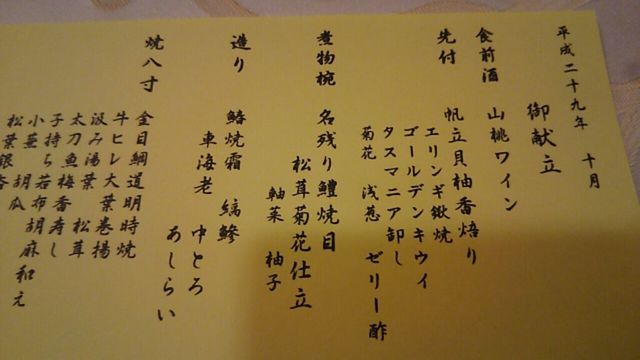 平成二十九年 十月
御献立
食前酒 山桃ワイン
先付 帆立貝柚香焙り
エリンギ鍬焼
ゴールデンキウイ
タスマニア卸し
菊花 浅葱 ゼリー酢
煮物椀 名残り鱧焼目
松茸菊花仕立
軸菜 柚子
造り 鰆焼霜 縞鯵 中とろ
車海老 あしらい
焼八寸 金目鯛道明時焼
牛ヒレ大葉巻揚
汲み湯葉 松茸
太刀魚梅香寿し
子持ち若布
小蕪 胡瓜 胡麻和え
松葉銀杏